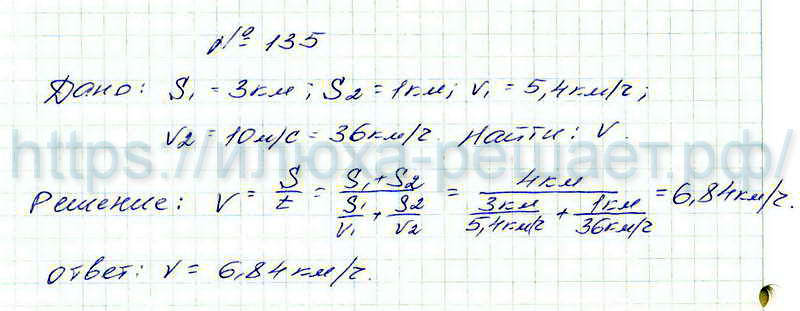 № 135
Дано: S₁ = 3км; S₂ = 1км; v₁ = 5,4км/ч;
v₂ = 10м/с = 36км/ч. Найти: V.
https://илюха-решает.рф/
Решение: V = S/t = (S₁ + S₂)/(S₁/v₁ + S₂/v₂) = 4км/(3км/5,4км/ч + 1км/36км/ч) = 6,84км/ч.
ответ: v = 6,84км/ч.